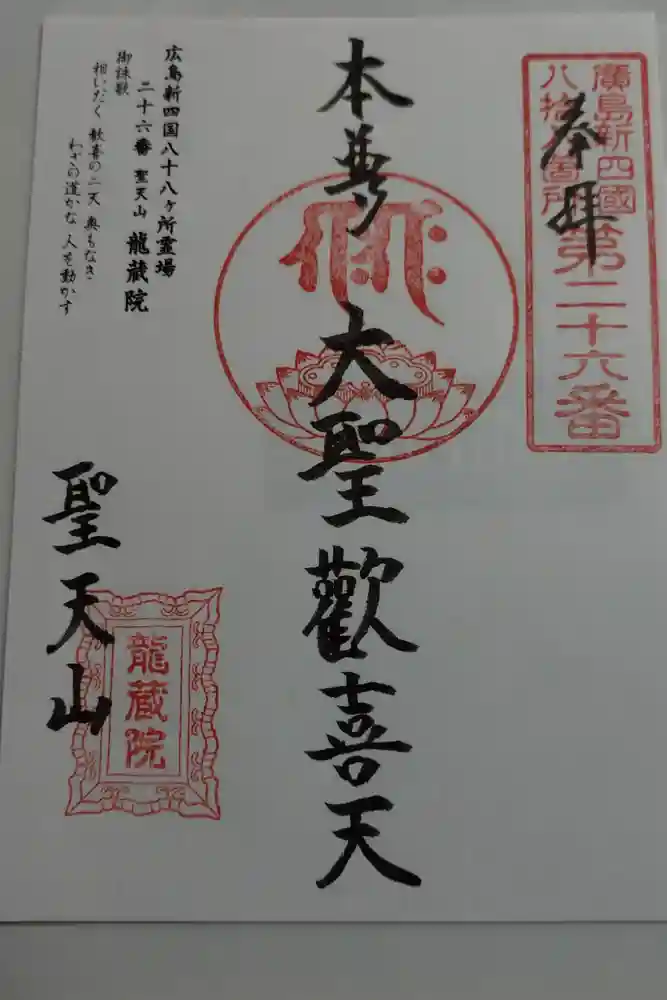 廣島新四國
八拾八箇所
第二十六番
奉拝
本尊
大聖歡喜天
広島新四国八十八ヶ所霊場
二十六番 聖天山 龍蔵院
御詠歌
相いだく 歓喜の二天 奥もなき
わざの道かな 人を動かす
聖天山
龍蔵院